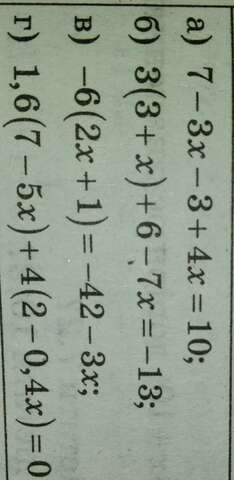 а) 7 − 3x − 3 + 4x = 10;
б) 3(3 + x) + 6 − 7x = −13;
в) −6(2x + 1) = −42 − 3x;
г) 1,6(7 − 5x) + 4(2 − 0,4x) = 0